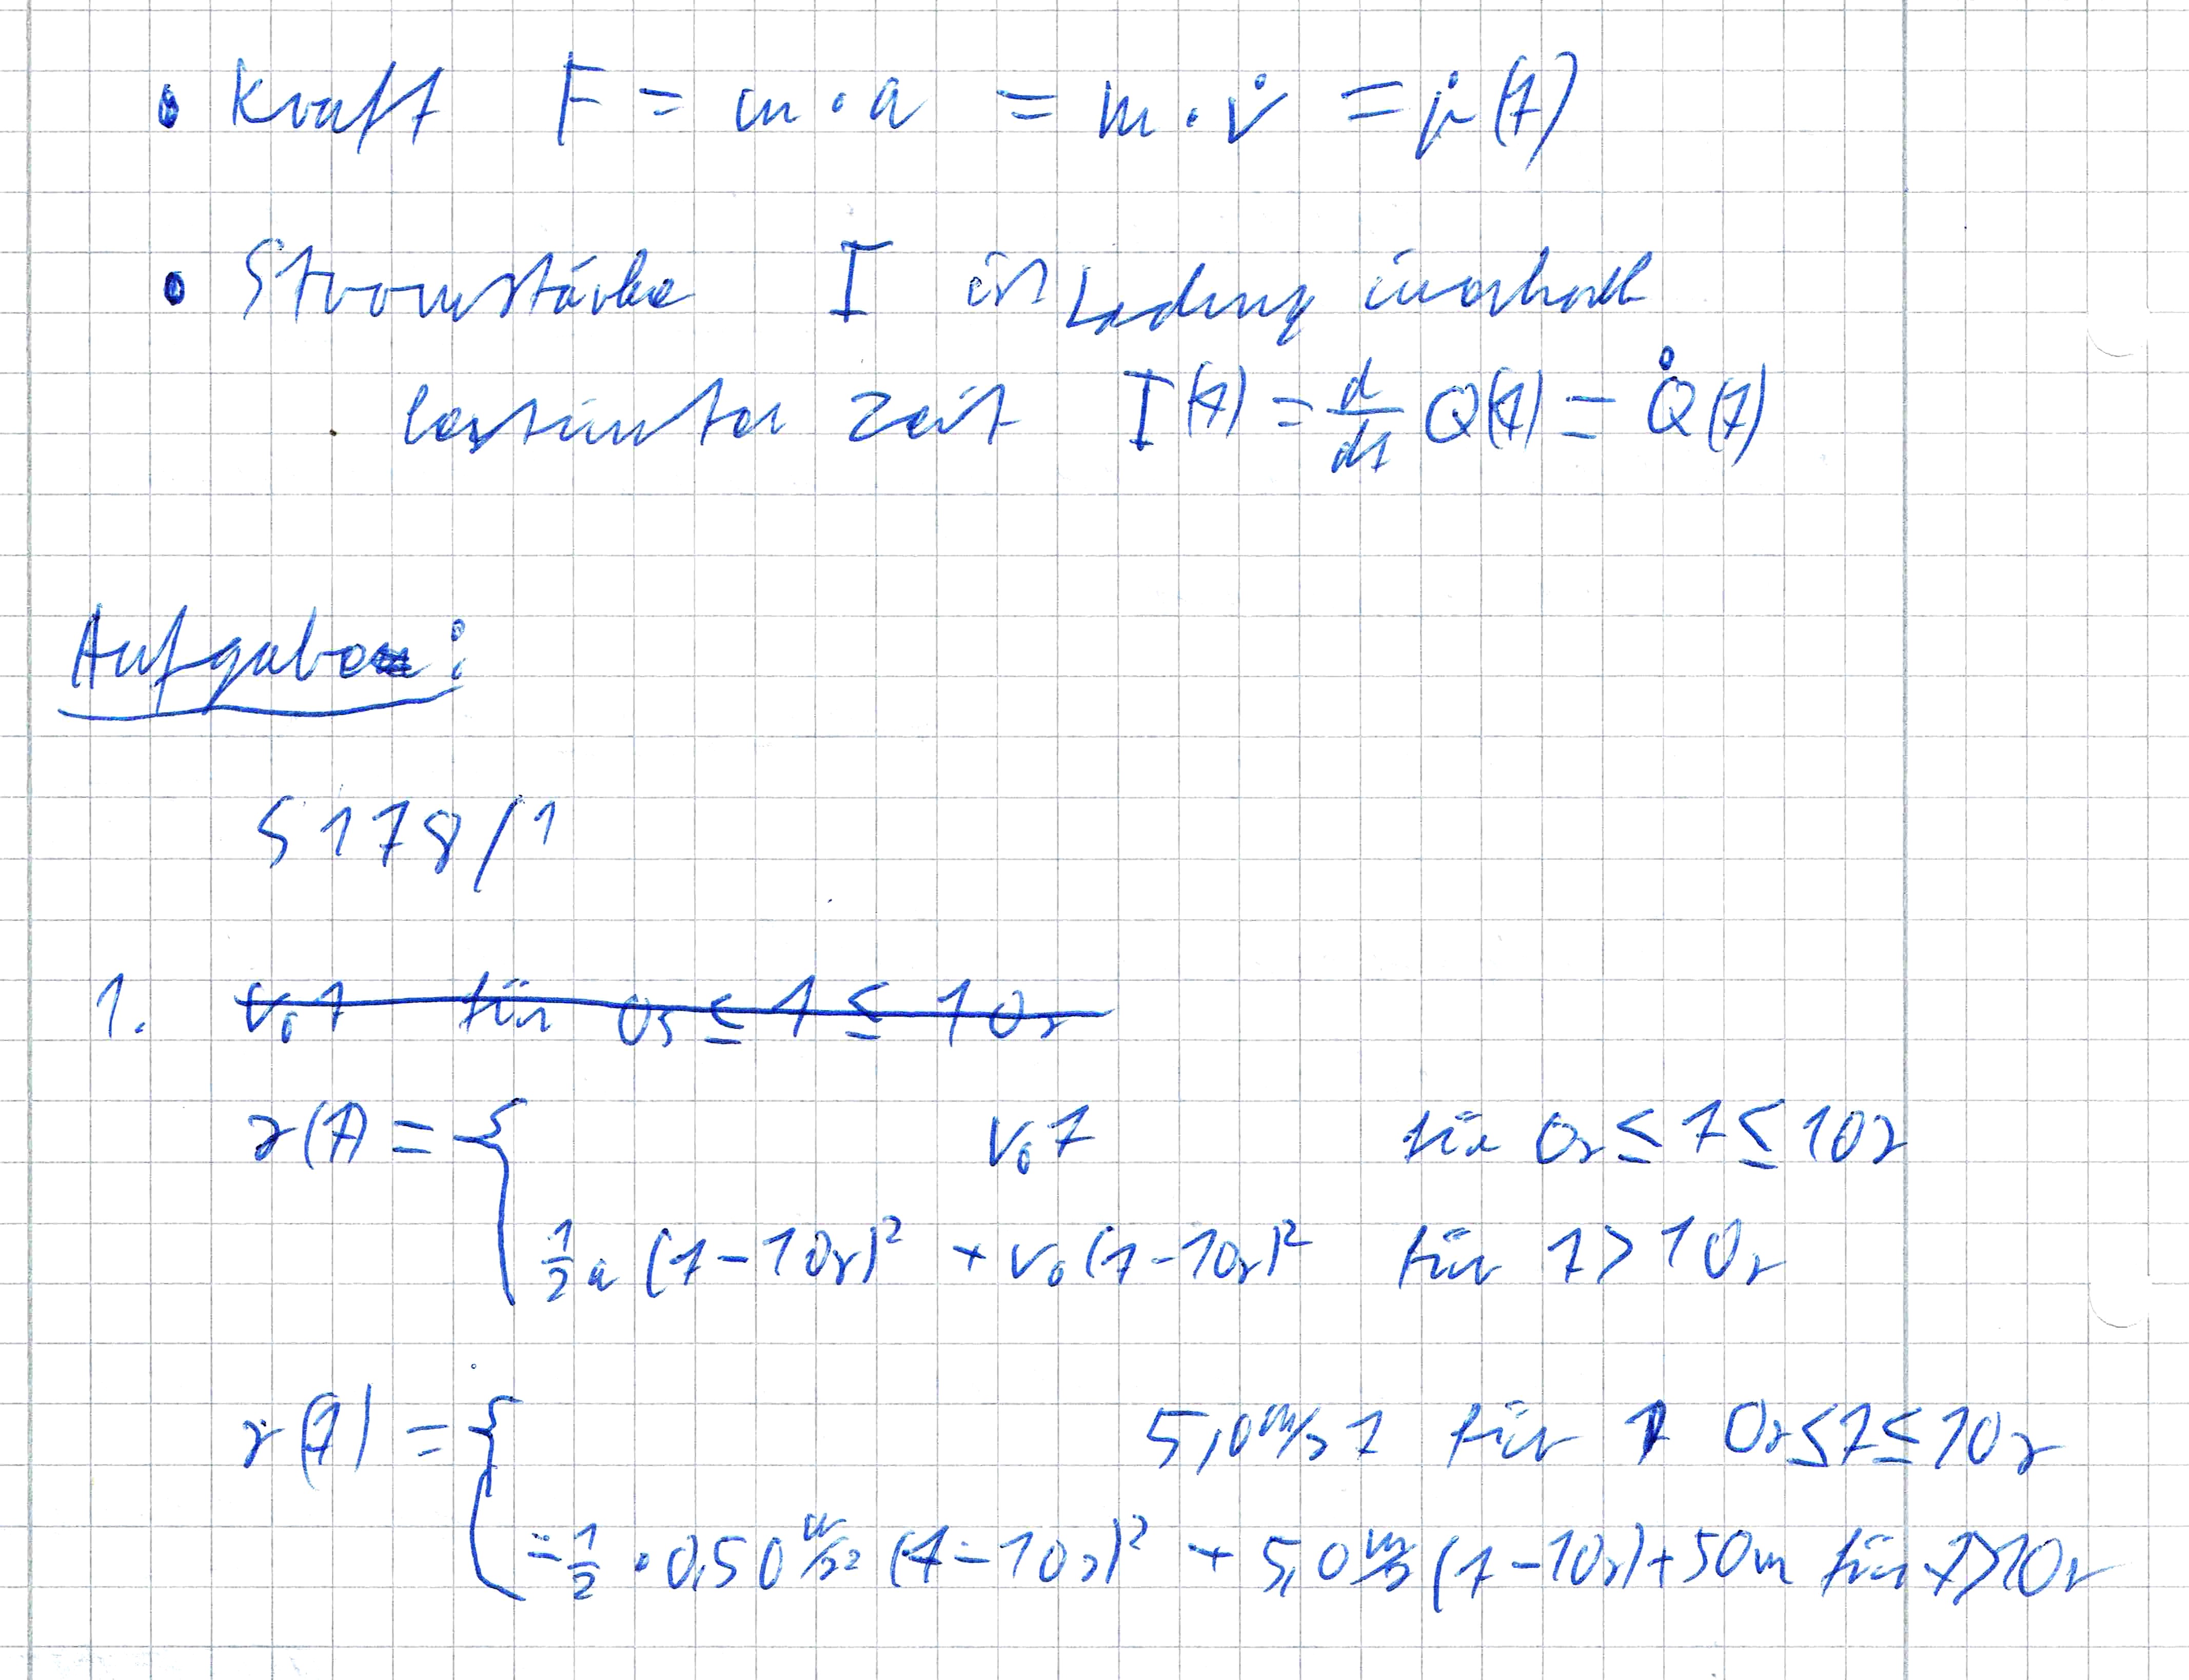 • Kraft F = m · a = m · v̇ = ṗ(t)
• Stromstärke I ist Ladung innerhalb
bestimmter Zeit I(t) = d/dt Q(t) = Q̇(t)
Aufgabe:
S 178/1
1. v₀t für 0s ≤ t ≤ 10s
s(t) = { v₀t für 0s ≤ t ≤ 10s
½a (t-10s)² + v₀(t-10s)² für t > 10s
s(t) = { 5,0 m/s t für 0s ≤ t ≤ 10s
-½ · 0,50 m/s² (t-10s)² + 5,0 m/s (t-10s) + 50m für t > 10s